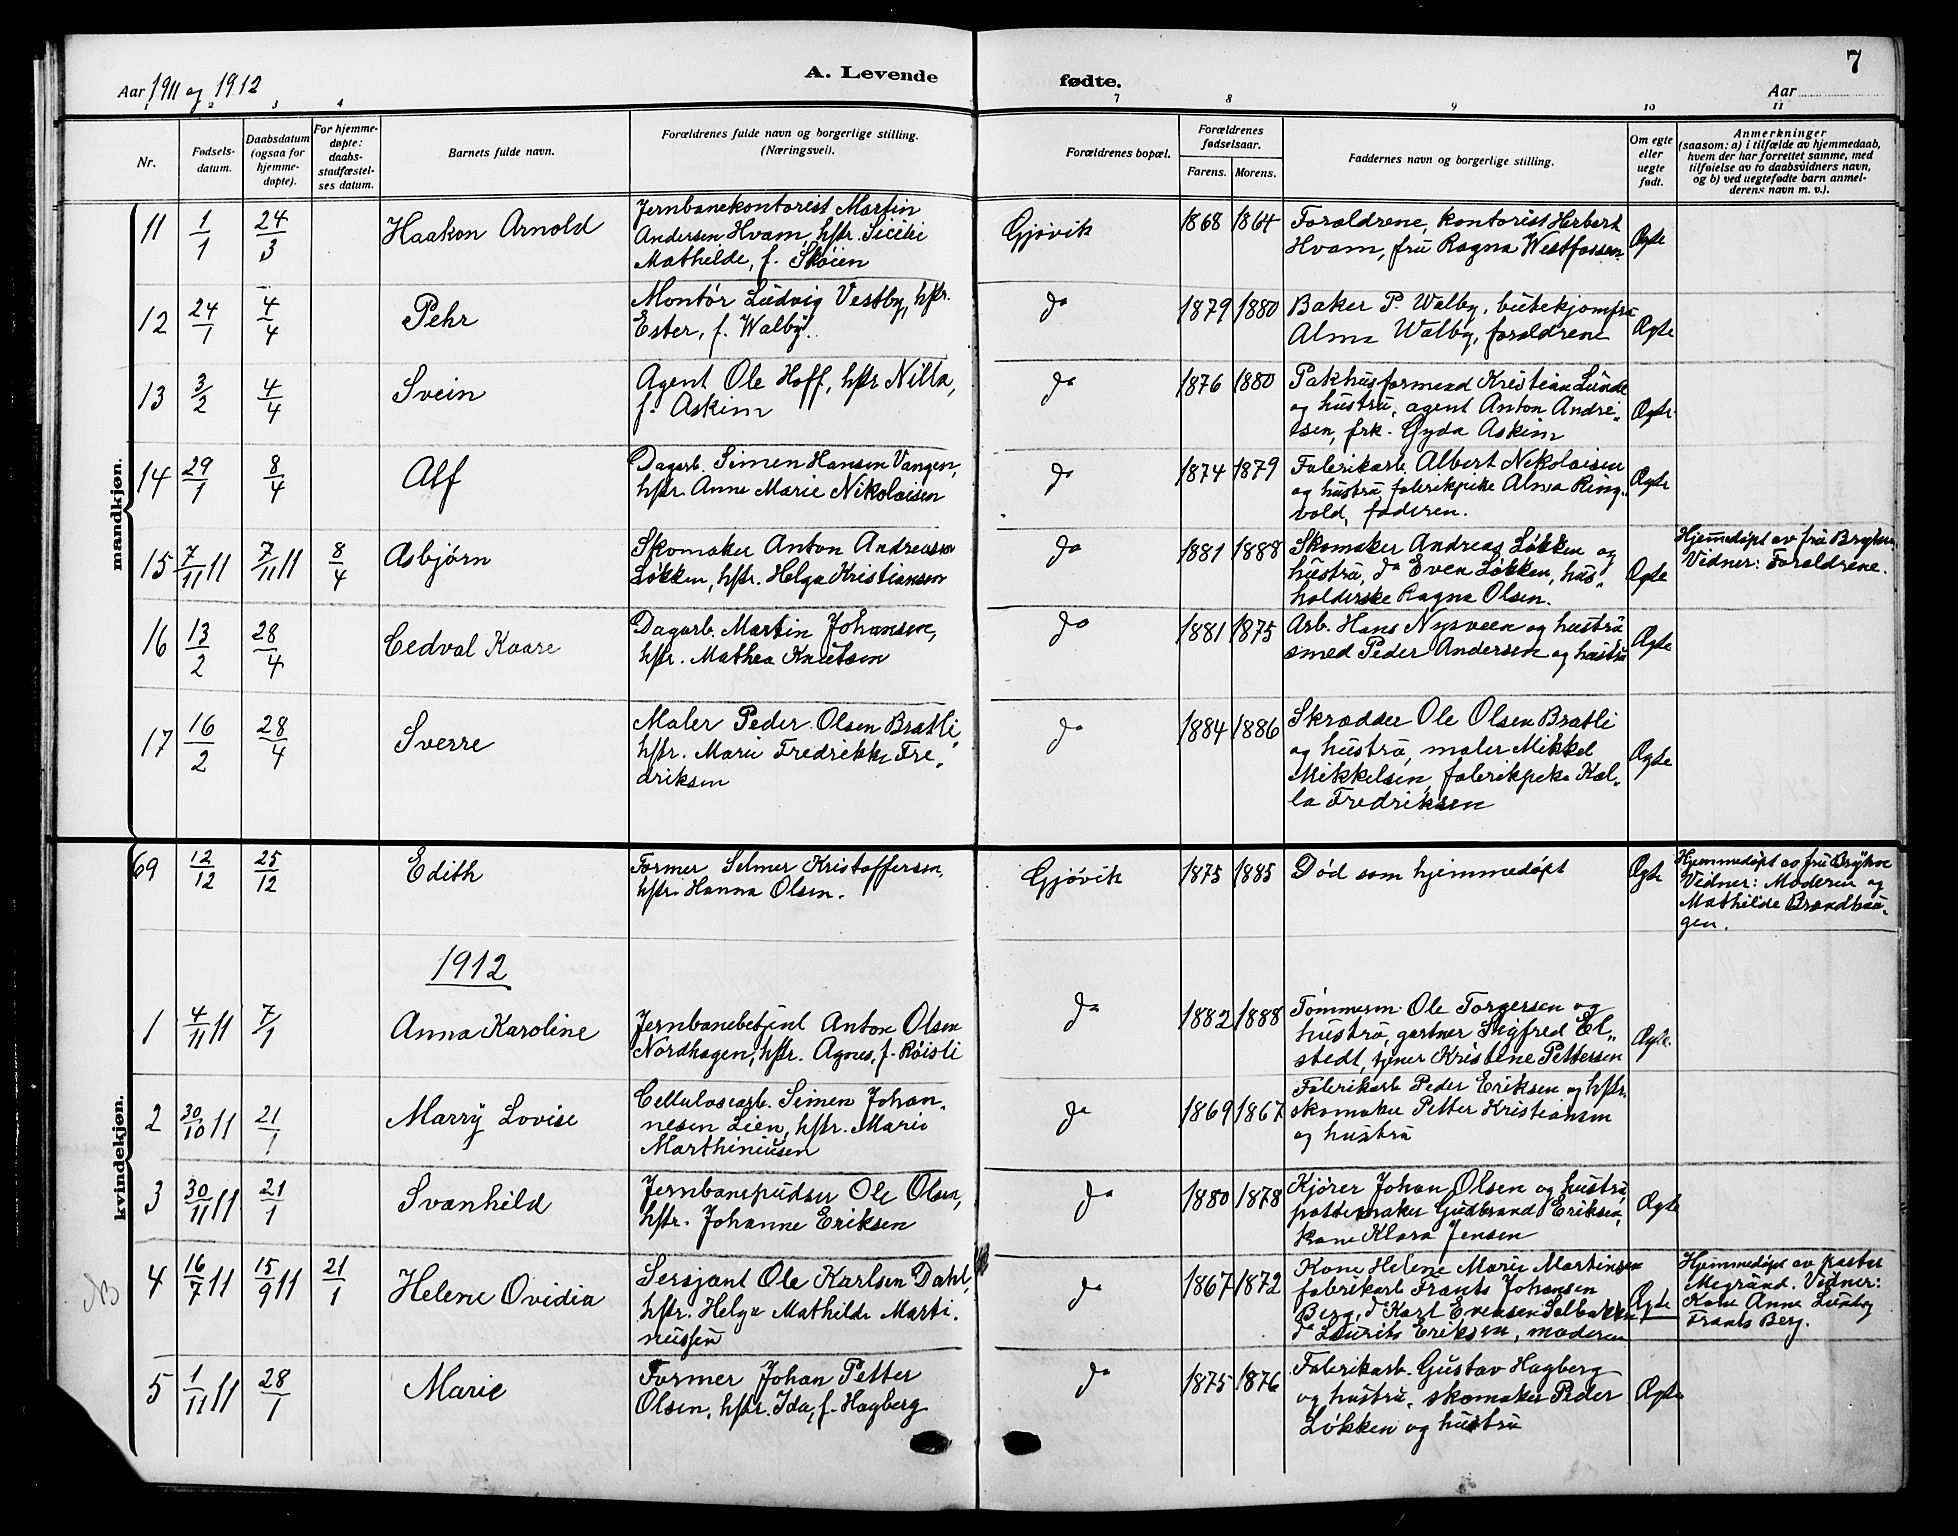 7
Aar 1911 og 1912
A. Levende fødte.
Aar
1 2 3 4 7 8 9 10 11
Nr.
Fødsels-
datum.
Daabsdatum
(ogsaa for
hjemme-
døpte).
For hjemme-
døpte:
daabs-
stadfæstel-
ses datum.
Barnets fulde navn.
Forældrenes fulde navn og borgerlige stilling.
(Næringsvei).
Forældrenes bopæl.
Forældrenes
fødselsaar.
Farens. Morens.
Faddernes navn og borgerlige stilling.
Om egte
eller
uegte
født.
Anmerkninger
(saasom: a) i tilfælde av hjemmedaab,
hvem der har forrettet samme, med
tilføielse av to daabsvidners navn,
og b) ved uegtefødte barn anmel-
derens navn m. v.).
mandkjøn.
11 1/1 24/3 Haakon Arnold
Jernbanekontorist Martin
Andersen Hvam, hstr. Sicilie
Mathilde, f. Skøien
Gjøvik 1868 1864
Forældrene, kontorist Herbert
Hvam, fru Ragna Westfossen
Ægte
12 24/1 4/4 Pehr
Montør Ludvig Vestby, hstr.
Ester, f. Walby.
do 1879 1880
Baker P. Walby, butikjomfru
Alma Walby, forældrene
Ægte
13 3/2 4/4 Svein
Agent Ole Hoff, hstr Nilla,
f. Askim
do 1876 1880
Pakhusformand Kristian Lunde
og hustru, agent Anton Andre-
esen, frk. Gyda Askim
Ægte
14 29/1 8/4 Alf
Dagarb. Simen Hansen Vangen,
hstr. Anne Marie Nikolaisen
do 1874 1879
Fabrikarb. Albert Nikolaisen
og hustru, fabrikpike Alma Ring-
vold, faderen.
Ægte
15 7/11 11 7/11 11 8/4 Asbjørn
Skomaker Anton Andreasen
Løkken, hstr. Helga Kristiansen
do 1881 1888
Skomaker Andreas Løkken og
hustru, do Even Løkken, hus-
holderske Ragna Olsen.
Ægte
Hjemmedøpt av fru Bryhn,
Vidner: Forældrene.
16 13/2 28/4 Cedval Kaare
Dagarb. Martin Johansen,
hstr. Mathea Knutsen
do 1881 1875
Arb. Hans Nysveen og hustru
smed Peder Andersen og hustru
Ægte
17 16/2 28/4 Sverre
Maler Peder Olsen Bratli,
hstr. Marie Fredrikke Fre-
driksen
do 1884 1886
Skrædder Ole Olsen Bratli
og hustru, maler Mikkel
Mikkelsen, fabrikpike Kal-
la Fredriksen
Ægte
kvindekjøn.
69 12/12 25/12 Edith
Former Selmer Kristoffersen,
hstr. Hanna Olsen.
Gjøvik 1875 1885
Død som hjemmedøpt
Ægte
Hjemmedøpt av fru Bryhn
Vidner: Moderen og
Mathilde Brændhau-
gen.
1912
1 4/11 11 7/1 Anna Karoline
Jernbanebetjent Anton Olsen
Nordhagen, hstr. Agnes, f. Røisli
do 1882 1888
Tømmerm. Ole Torgersen og
hustru, gartner Sigfred El-
stedt, tjener Kristine Pettersen
Ægte.
2 30/10 11 21/1 Marry Lovise
Cellulosearb. Simen Johan-
nesen Lien, hstr. Marie
Marthiniusen
do 1869 1867
Fabrikarb Peder Eriksen og hstr.
skomaker Petter Kristiansen
og hustru
3 30/11 11 21/1 Svanhild
Jernbanepudser Ole Olsen,
hstr. Johanne Eriksen
do 1880 1878
Kjører Johan Olsen og hustru,
pottemaker Gudbrand Eriksen,
kone Klara Jensen
Ægte
NB
4 16/7 11 15/9 11 21/1 Helene Ovidia
Sersjant Ole Karlsen Dahl,
hstr. Helga Mathilde Marti-
nussen
do 1867 1872
Kone Helene Marie Martinsen
fabrikarb Frants Johansen
Berg, do Karl Evensen Solbakken,
do Laurits Eriksen, moderen
Ægte
Hjemmedøpt av pastor
Megrund. Vidner:
Kone Anne Lundby
Frants Berg.
5 1/11 11 28/1 Marie
Former Johan Petter
Olsen, hstr. Ida, f. Hagberg
do 1875 1876
Fabrikarb. Gustav Hagberg
og hustru, skomaker Peder
Løkken og hustru
Ægte